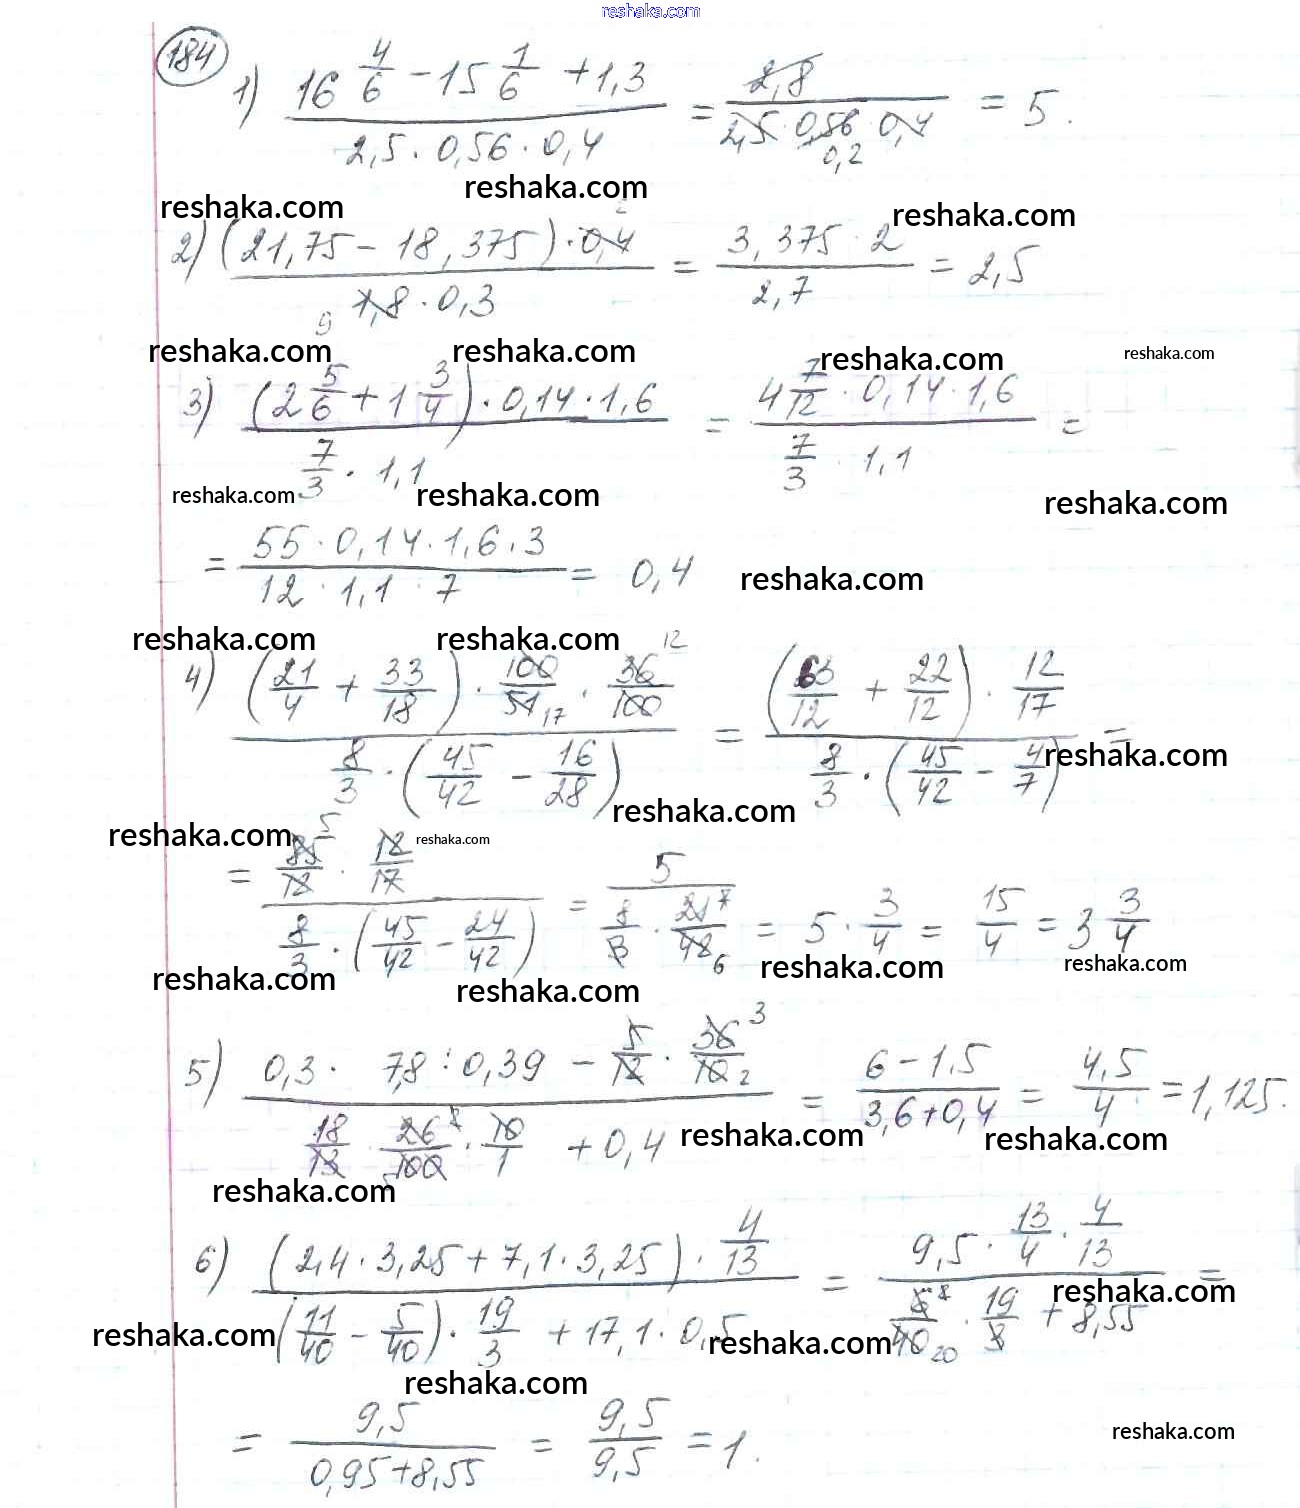 reshaka.com
184
1) (16 4/6 - 15 1/6 + 1,3) / (2,5 · 0,56 · 0,4) = 2,8 / (2,5 · 0,56 · 0,4) = 5.
0,2
reshaka.com
reshaka.com reshaka.com
2) ((21,75 - 18,375) · 0,4) / (1,8 · 0,3) = (3,375 · 2) / 2,7 = 2,5
2
9
reshaka.com reshaka.com reshaka.com reshaka.com
3) ((2 5/6 + 1 3/4) · 0,14 · 1,6) / (7/3 · 1,1) = (4 7/12 · 0,14 · 1,6) / (7/3 · 1,1) =
reshaka.com reshaka.com reshaka.com
= (55 · 0,14 · 1,6 · 3) / (12 · 1,1 · 7) = 0,4
reshaka.com
reshaka.com reshaka.com
4) ((21/4 + 33/18) · 100/51 · 36/100) / (8/3 · (45/42 - 16/28)) = ((63/12 + 22/12) · 12/17) / (8/3 · (45/42 - 4/7)) =
12
17
reshaka.com
reshaka.com
reshaka.com reshaka.com
= (85/12 · 12/17) / (8/3 · (45/42 - 24/42)) = 5 / (8/3 · 21/42) = 5 · 3/4 = 15/4 = 3 3/4
5
7
6
reshaka.com reshaka.com reshaka.com reshaka.com
5) (0,3 · 7,8 : 0,39 - 5/12 · 36/10) / (18/13 · 26/100 · 10/1 + 0,4) = (6 - 1,5) / (3,6 + 0,4) = 4,5 / 4 = 1,125.
3
2
2
5
reshaka.com reshaka.com
reshaka.com
6) ((2,4 · 3,25 + 7,1 · 3,25) · 4/13) / ((11/40 - 5/40) · 19/3 + 17,1 · 0,5) = (9,5 · 13/4 · 4/13) / (6/40 · 19/3 + 8,55) =
20
reshaka.com
reshaka.com reshaka.com
reshaka.com
= 9,5 / (0,95 + 8,55) = 9,5 / 9,5 = 1.
reshaka.com